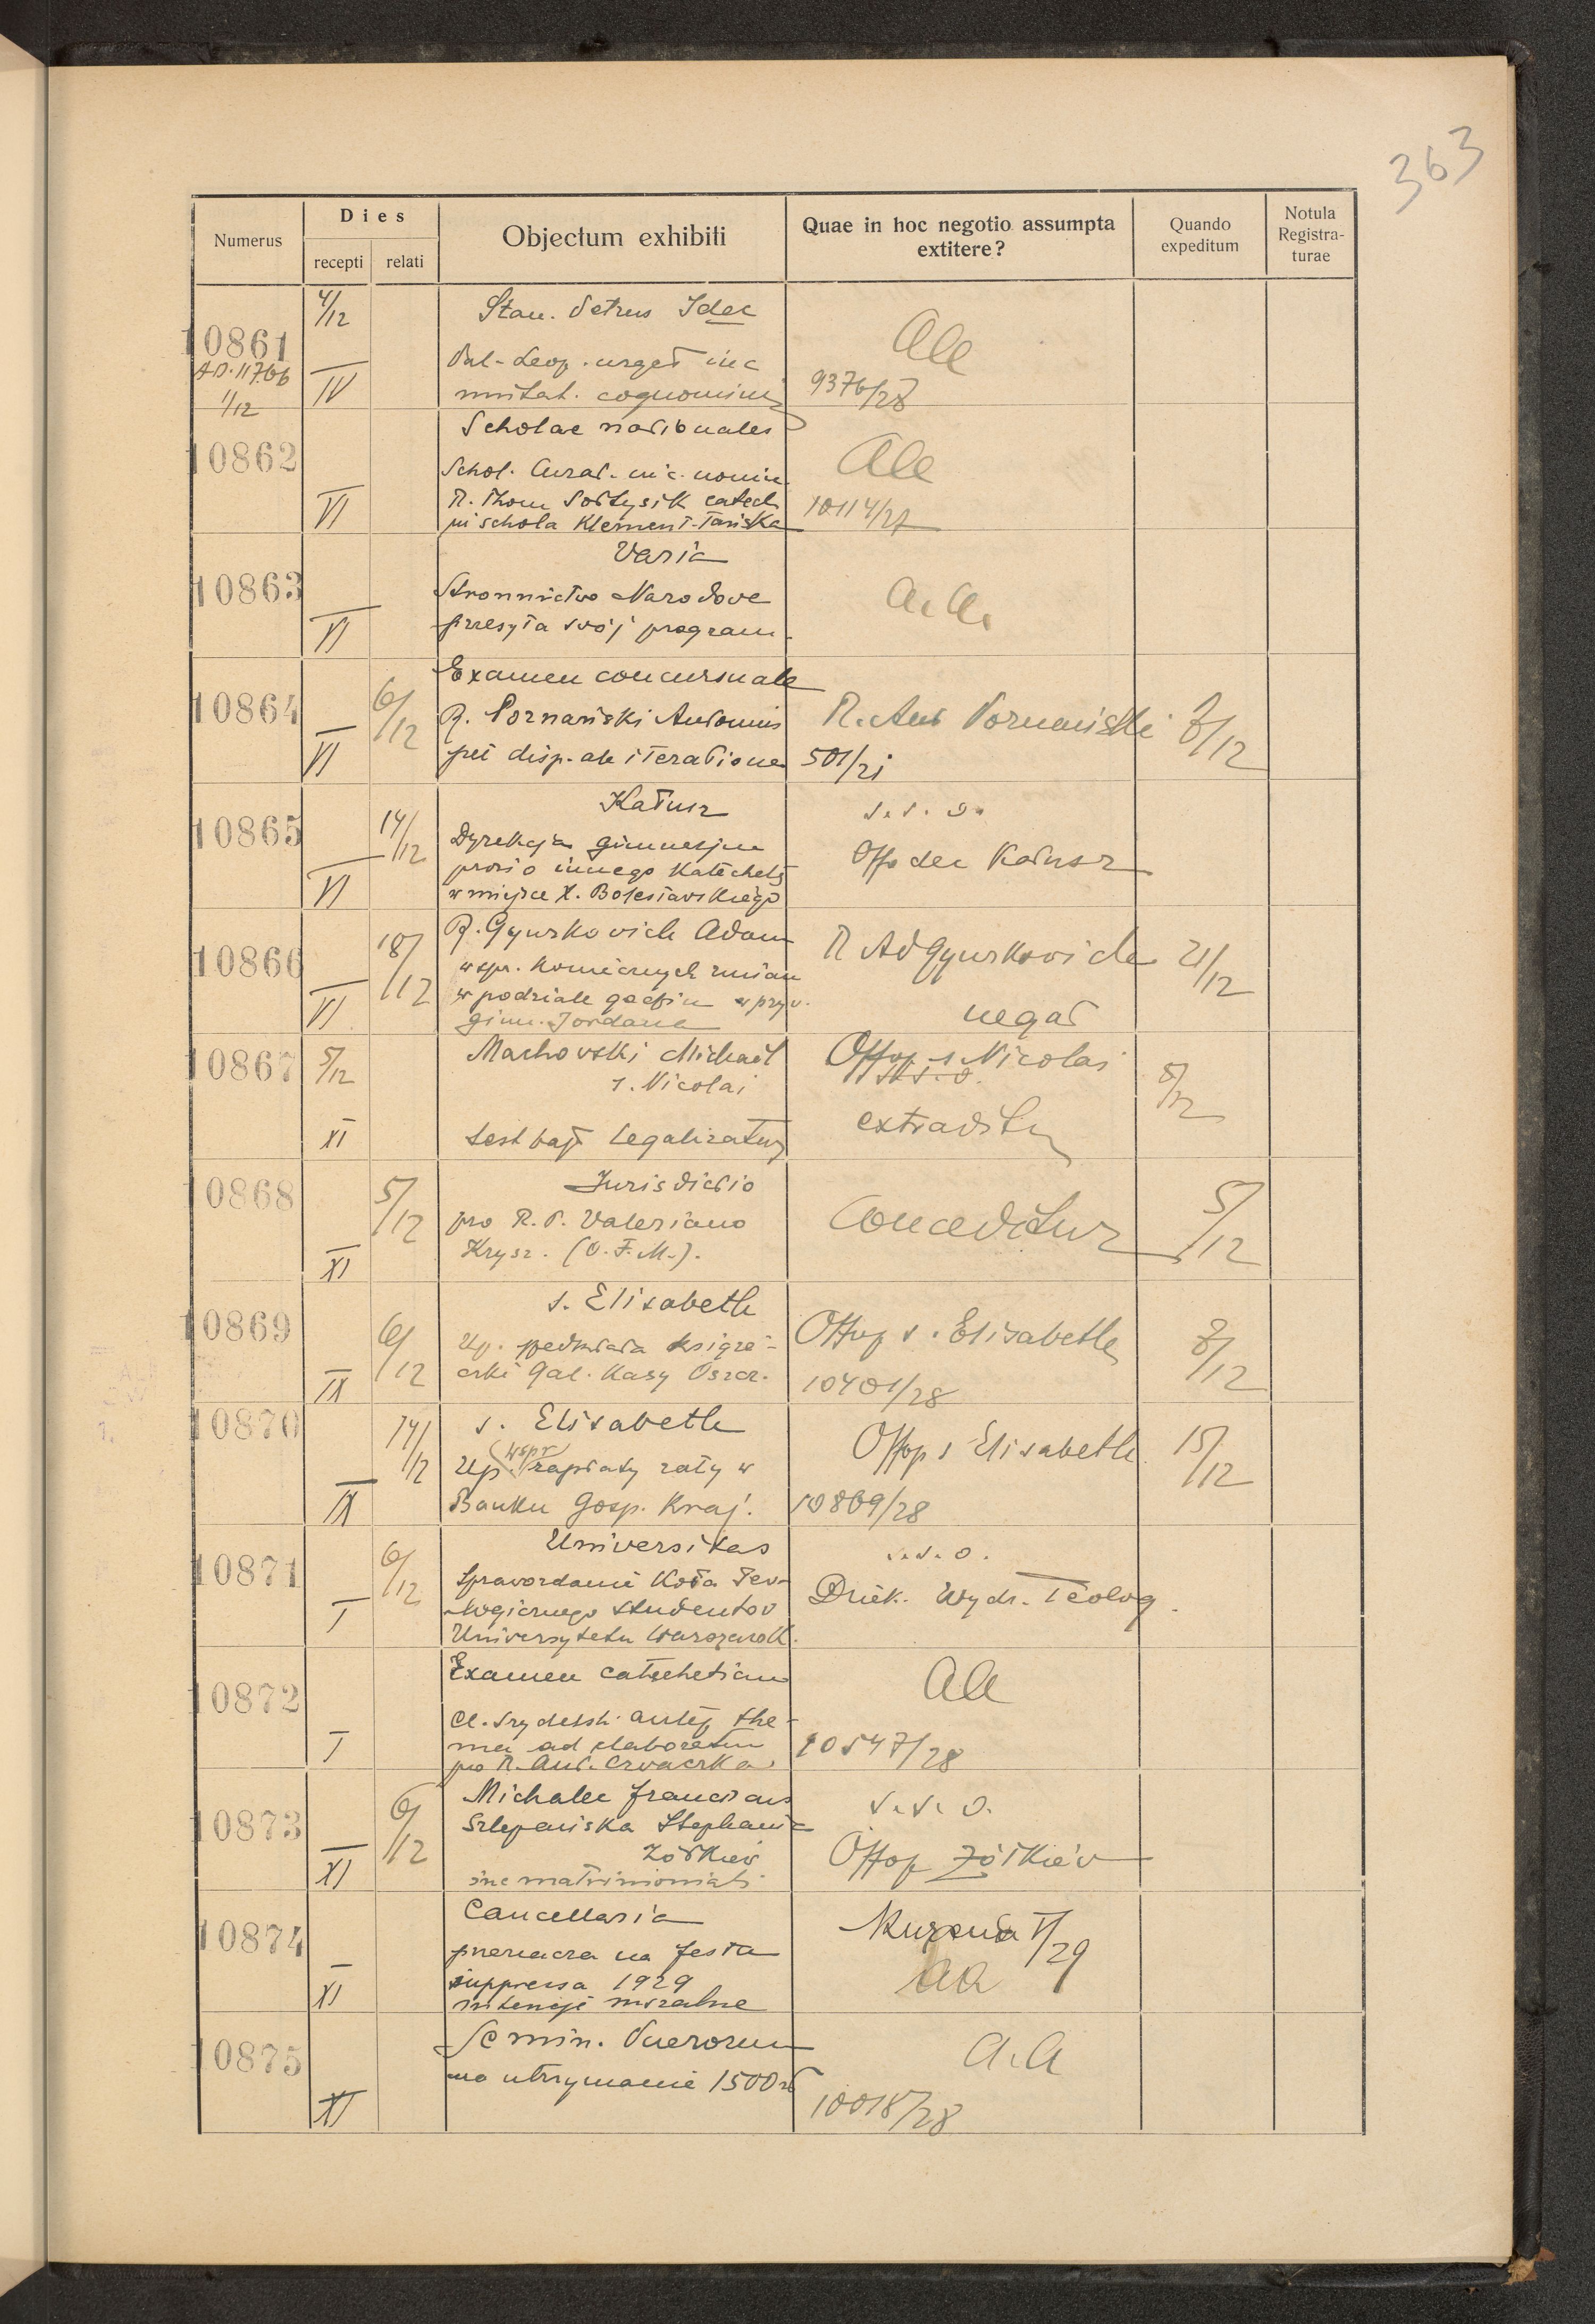 363
Numerus
Dies
recepti relati
Objectum exhibiti
Quae in hoc negotio assumpta
extitere?
Quando
expeditum
Notula
Registra-
turae
10861
4/12
1/12
IV
Stan. Petrus Idec
Pal-Leop. urget
mutat. cognominis
9376/28
10862
VI
Scholae nationales
Schol. Curat. nomin
R. Thom Sołtysik catech
in schola Klement. Tańska
10114/27
10863
VI
Varia
Stronnictwo Narodowe
przesyła swój program.
a. a.
10864
VI
6/12
Examen concursuale
R. Poznański Antonius
pet disp. ab iteratione
R. Ant Poznański
501/21
8/12
10865
VI
14/12
Kałusz
Dyrekcja gimnazjum
prosi o innego katechetę
w miejsce X. Bolesławskiego
s. s. o.
Offo dec Kałusz
10866
VI
18/12
R. Gyurkovich Adam
w spr. koniecznych zmian
w podziale godzin w pryw.
gimn. Jordana
R Ad Gyurkovich
negat
21/12
10867
5/12
XI
Machowski Michael
s. Nicolai
test bapt legalizatur
Offop s Nicolai
s. s. o.
extraditur
5/12
10868
XI
5/12
Jurisdictio
pro R. P. Valeriano
Krysz. (O. F. M.).
Conceditur
5/12
10869
IX
6/12
s. Elisabeth
Up. książe-
czki Gal. Kasy Oszcz.
Offop s. Elisabeth
10401/28
8/12
10870
IX
14/12
s. Elisabeth
wspr
Up. zapłaty raty w
Banku Gosp. Kraj.
Offop s Elisabeth
10869/28
15/12
10871
I
6/12
Universitas
Sprawozdanie Koła Teo-
logicznego studentów
Uniwersytetu Warszawsk.
s. s. o.
Dziek. Wydz. Teolog.
10872
I
Examen catecheticum
Cl. Szydelski the-
ma ad elaboratum
pro R. Ant. Czwaczka
10547/28
10873
XI
6/12
Michalec Franciscus
Szlepańska Stephania
Żółkiew
inc matrimoniali
s. s. o.
Offop Żółkiew
10874
XI
Cancellaria
przeznacza na festa
suppressa 1929
intencje mszalne
Kurenda I/29
aa
10875
XI
Semin. Puerorum
na utrzymanie 1500 zł
a. a
10018/28